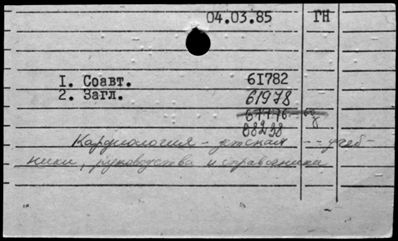 04.03.85 ГН
1. Соавт. 61782
2. Загл. 61978
61776
88238
Кардиология - детская -- учеб-
ники, руководства и справочники